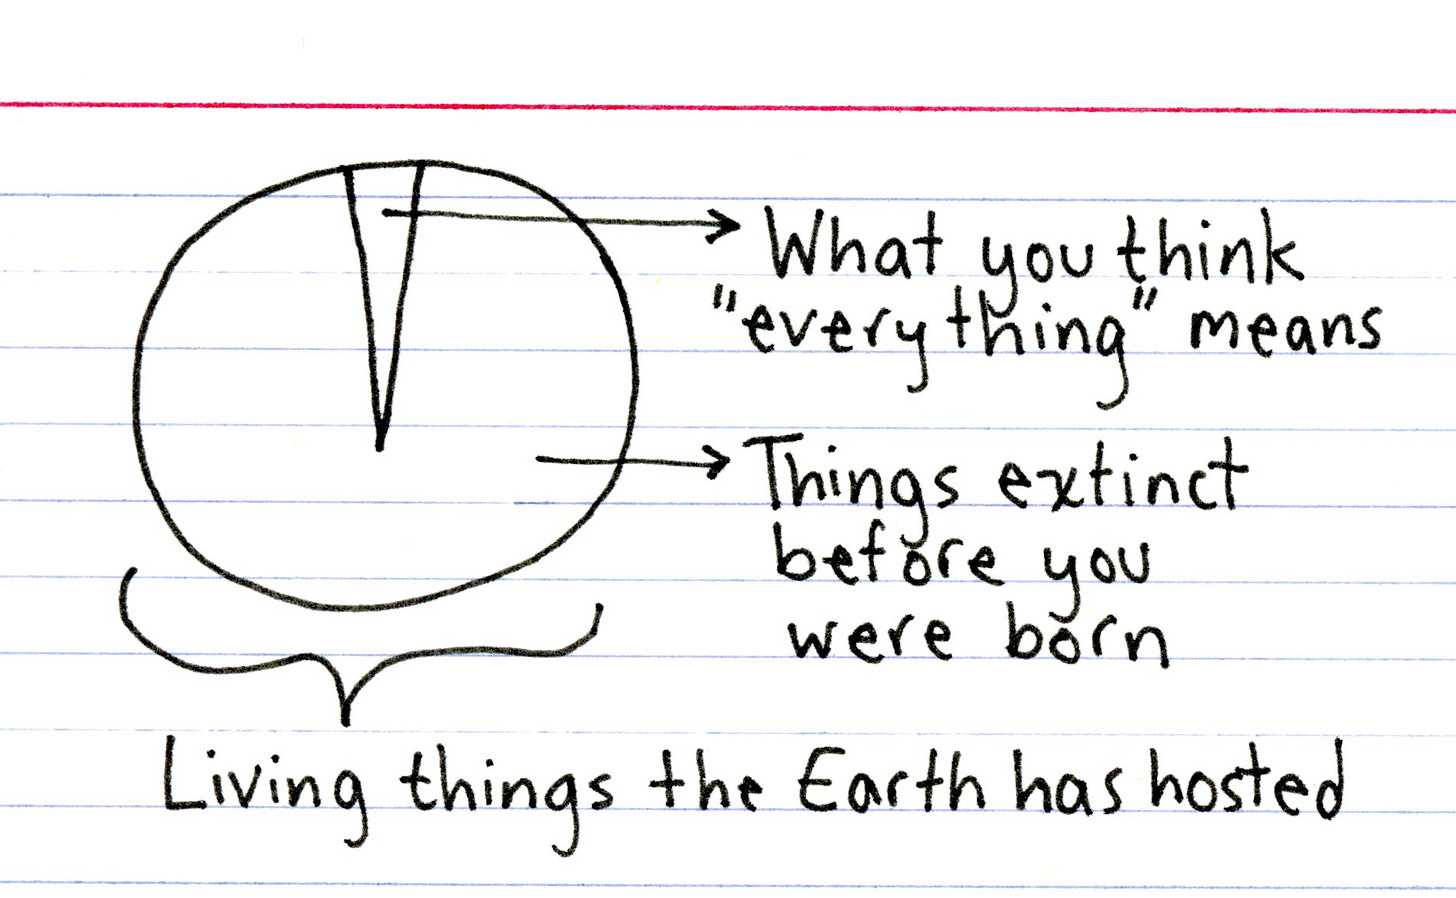 What you think
"everything" means
Things extinct
before you
were born
Living things the Earth has hosted